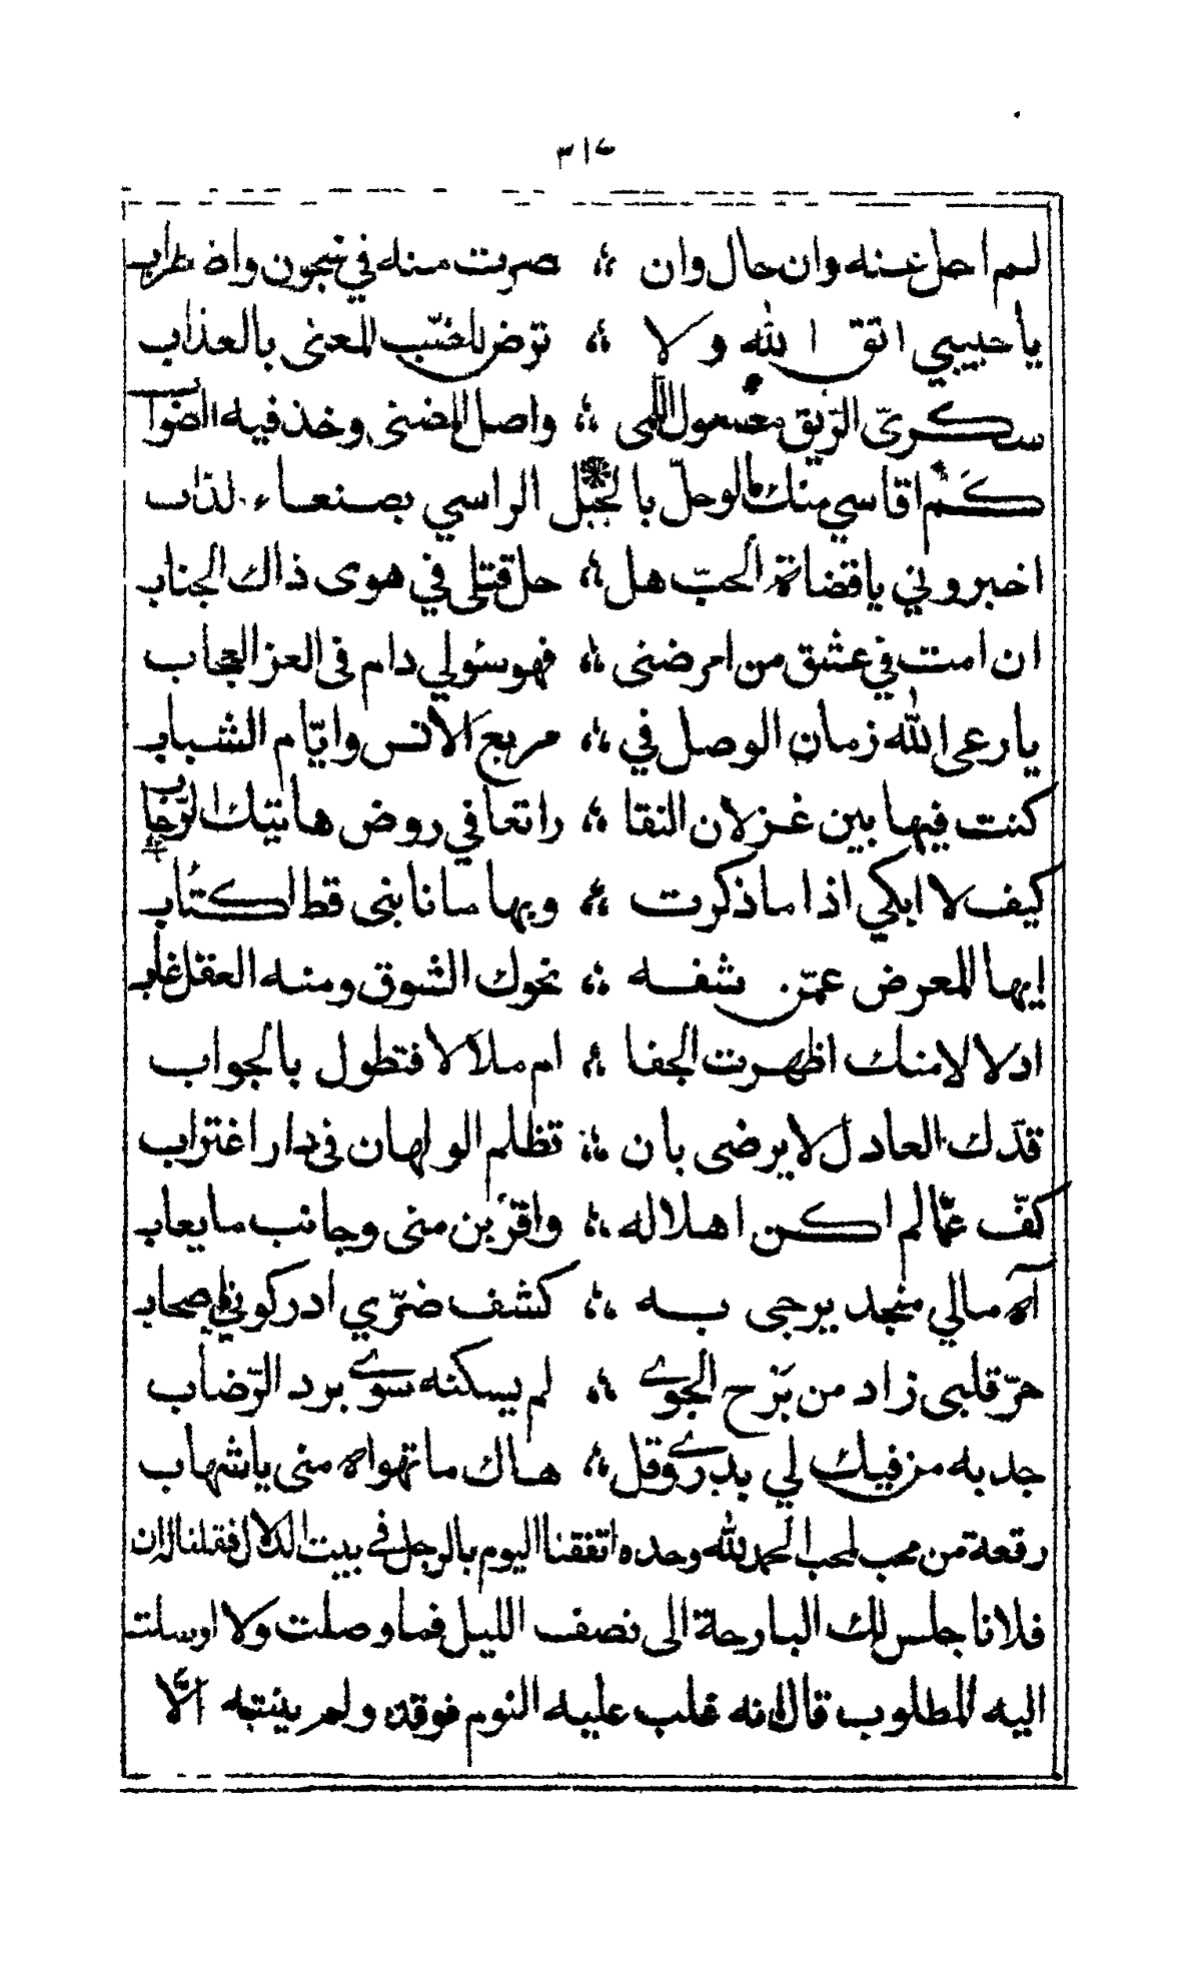 ٣١٦
لم احل عنه وان حال وان ؛ صرت منه في شجون واضطراب
يا حبيبي اتق الله ولا ؛ ترض للضب المعنى بالعذاب
سكريّ الرّيق معسول اللمى ؛ واصل المضنى وخذ فيه الضواب
كم اقاسي منك كالوحلّ بالجبل الراسي بصنعاء لذاب
اخبروني يا قضاة الحبّ هل ؛ حل قتلى في هوى ذاك الجناب
ان امت في عشق من امرضنى ؛ فهو سئولي دام فى العز العجاب
يا رعى الله زمان الوصل في ؛ مربع الانس وايّام الشباب
كنت فيها بين غزلان النقا ؛ راتعا في روض هاتيك الرّحاب
كيف لا ابكي اذا ما ذكرت ؛ وبها ما نابنى قط اكتئاب
ايها المعرض عمّن شفه ؛ نحوك الشوق ومنه العقل غاب
ادلالا منك اظهرت الجفا ؛ ام ملالا فتطول بالجواب
قدّك العادل لا يرضى بان ؛ تظلم الولهان فى دار اغتراب
كفّ عمّا لم اكن اهلا له ؛ واقربن منى وجانب ما يعاب
آه مالي منجد يرجى به ؛ كشف ضرّي ادركوني يا صحاب
حرّ قلبى زاد من برح الجوى ؛ لم يسكنه سوى برد الرّضاب
جد به من فيك لي بدرى وقل ؛ هاك ما تهواه منى يا شهاب
رقعة من محب لمحب الحمد لله وحده اتفقنا اليوم بالرجل في بيت الدلال فقلنا له ان
فلانا جلس لك البارحة الى نصف الليل فما وصلت ولا ارسلت
اليه المطلوب قال انه غلب عليه النوم فوقد ولم ينتبه الّا